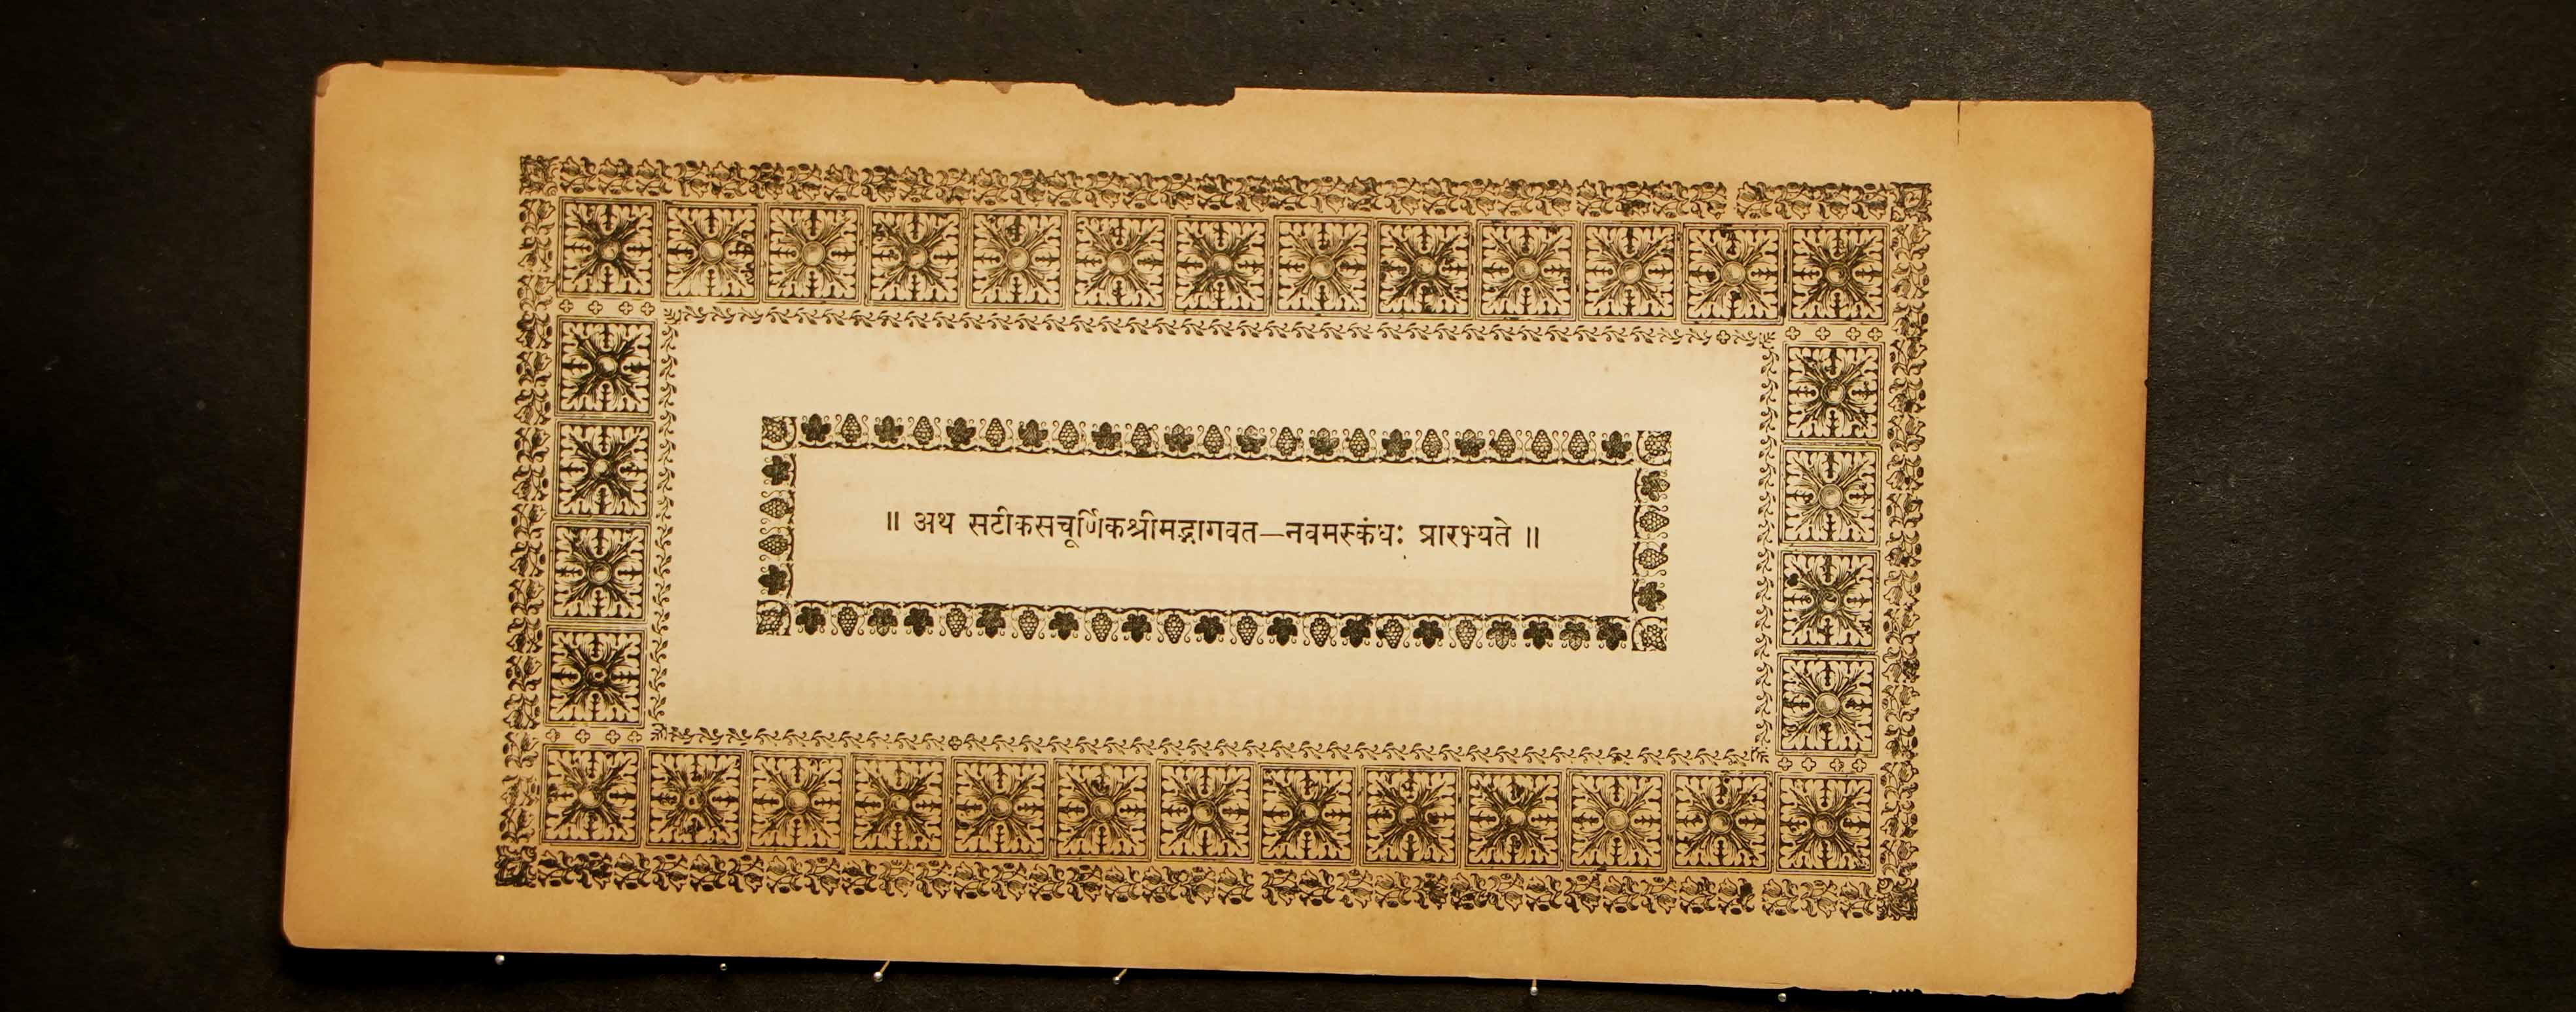 ॥ अथ सटीकसचूर्णिकश्रीमद्भागवत—नवमस्कंधः प्रारभ्यते ॥